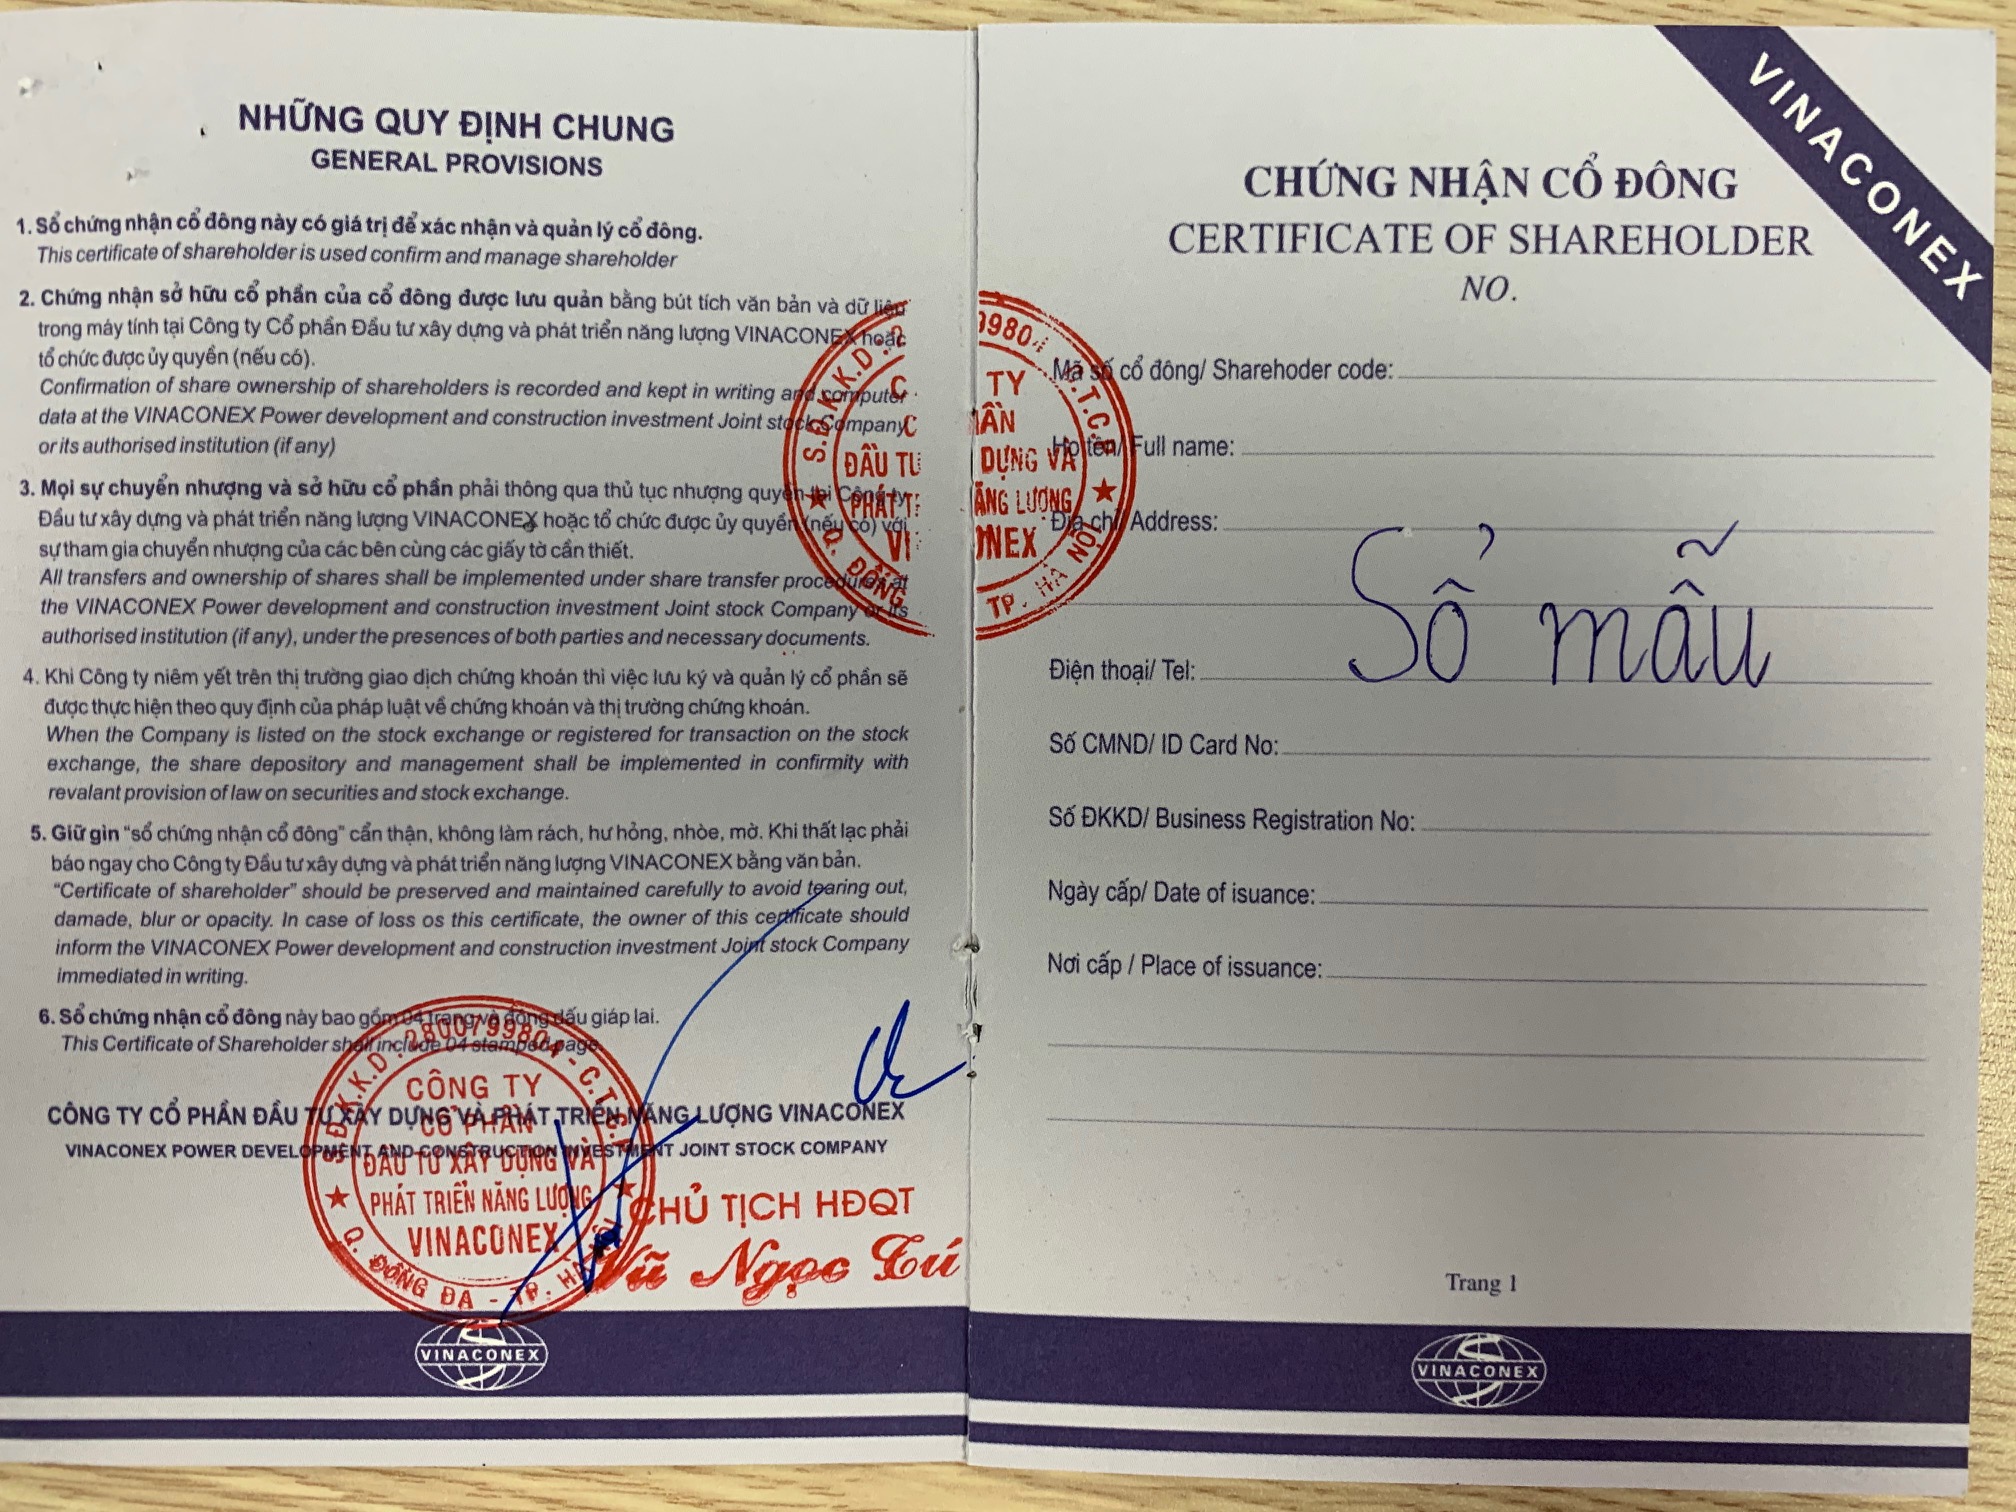 NHỮNG QUY ĐỊNH CHUNG
GENERAL PROVISIONS
1. Sổ chứng nhận cổ đông này có giá trị để xác nhận và quản lý cổ đông.
This certificate of shareholder is used confirm and manage shareholder
2. Chứng nhận sở hữu cổ phần của cổ đông được lưu quản bằng bút tích văn bản và dữ liệu
trong máy tính tại Công ty Cổ phần Đầu tư xây dựng và phát triển năng lượng VINACONEX hoặc
tổ chức được ủy quyền (nếu có).
Confirmation of share ownership of shareholders is recorded and kept in writing and computer
data at the VINACONEX Power development and construction investment Joint stock Company
or its authorised institution (if any)
3. Mọi sự chuyển nhượng và sở hữu cổ phần phải thông qua thủ tục nhượng quyền tại Công ty
Đầu tư xây dựng và phát triển năng lượng VINACONEX hoặc tổ chức được ủy quyền (nếu có) với
sự tham gia chuyển nhượng của các bên cùng các giấy tờ cần thiết.
All transfers and ownership of shares shall be implemented under share transfer procedures at
the VINACONEX Power development and construction investment Joint stock Company or its
authorised institution (if any), under the presences of both parties and necessary documents.
4. Khi Công ty niêm yết trên thị trường giao dịch chứng khoán thì việc lưu ký và quản lý cổ phần sẽ
được thực hiện theo quy định của pháp luật về chứng khoán và thị trường chứng khoán.
When the Company is listed on the stock exchange or registered for transaction on the stock
exchange, the share depository and management shall be implemented in confirmity with
revalant provision of law on securities and stock exchange.
5. Giữ gìn "sổ chứng nhận cổ đông" cẩn thận, không làm rách, hư hỏng, nhòe, mờ. Khi thất lạc phải
báo ngay cho Công ty Đầu tư xây dựng và phát triển năng lượng VINACONEX bằng văn bản.
"Certificate of shareholder" should be preserved and maintained carefully to avoid tearing out,
damade, blur or opacity. In case of loss os this certificate, the owner of this certificate should
inform the VINACONEX Power development and construction investment Joint stock Company
immediated in writing.
6. Sổ chứng nhận cổ đông này bao gồm 04 trang và đóng dấu giáp lai.
This Certificate of Shareholder shall include 04 stamped page.
CÔNG TY CỔ PHẦN ĐẦU TƯ XÂY DỰNG VÀ PHÁT TRIỂN NĂNG LƯỢNG VINACONEX
VINACONEX POWER DEVELOPMENT AND CONSTRUCTION INVESTMENT JOINT STOCK COMPANY
S.Đ.K.K.D: 2800799804 - C.T.C.P
CÔNG TY
CỔ PHẦN
ĐẦU TƯ XÂY DỰNG VÀ
PHÁT TRIỂN NĂNG LƯỢNG
VINACONEX
Q. ĐỐNG ĐA - TP. HÀ NỘI
CHỦ TỊCH HĐQT
Vũ Ngọc Tú
VINACONEX
VINACONEX
CHỨNG NHẬN CỔ ĐÔNG
CERTIFICATE OF SHAREHOLDER
NO.
Mã số cổ đông/ Sharehoder code:
Họ tên/ Full name:
Địa chỉ/ Address:
Sổ mẫu
Điện thoại/ Tel:
Số CMND/ ID Card No:
Số ĐKKD/ Business Registration No:
Ngày cấp/ Date of issuance:
Nơi cấp / Place of issuance:
Trang 1
VINACONEX